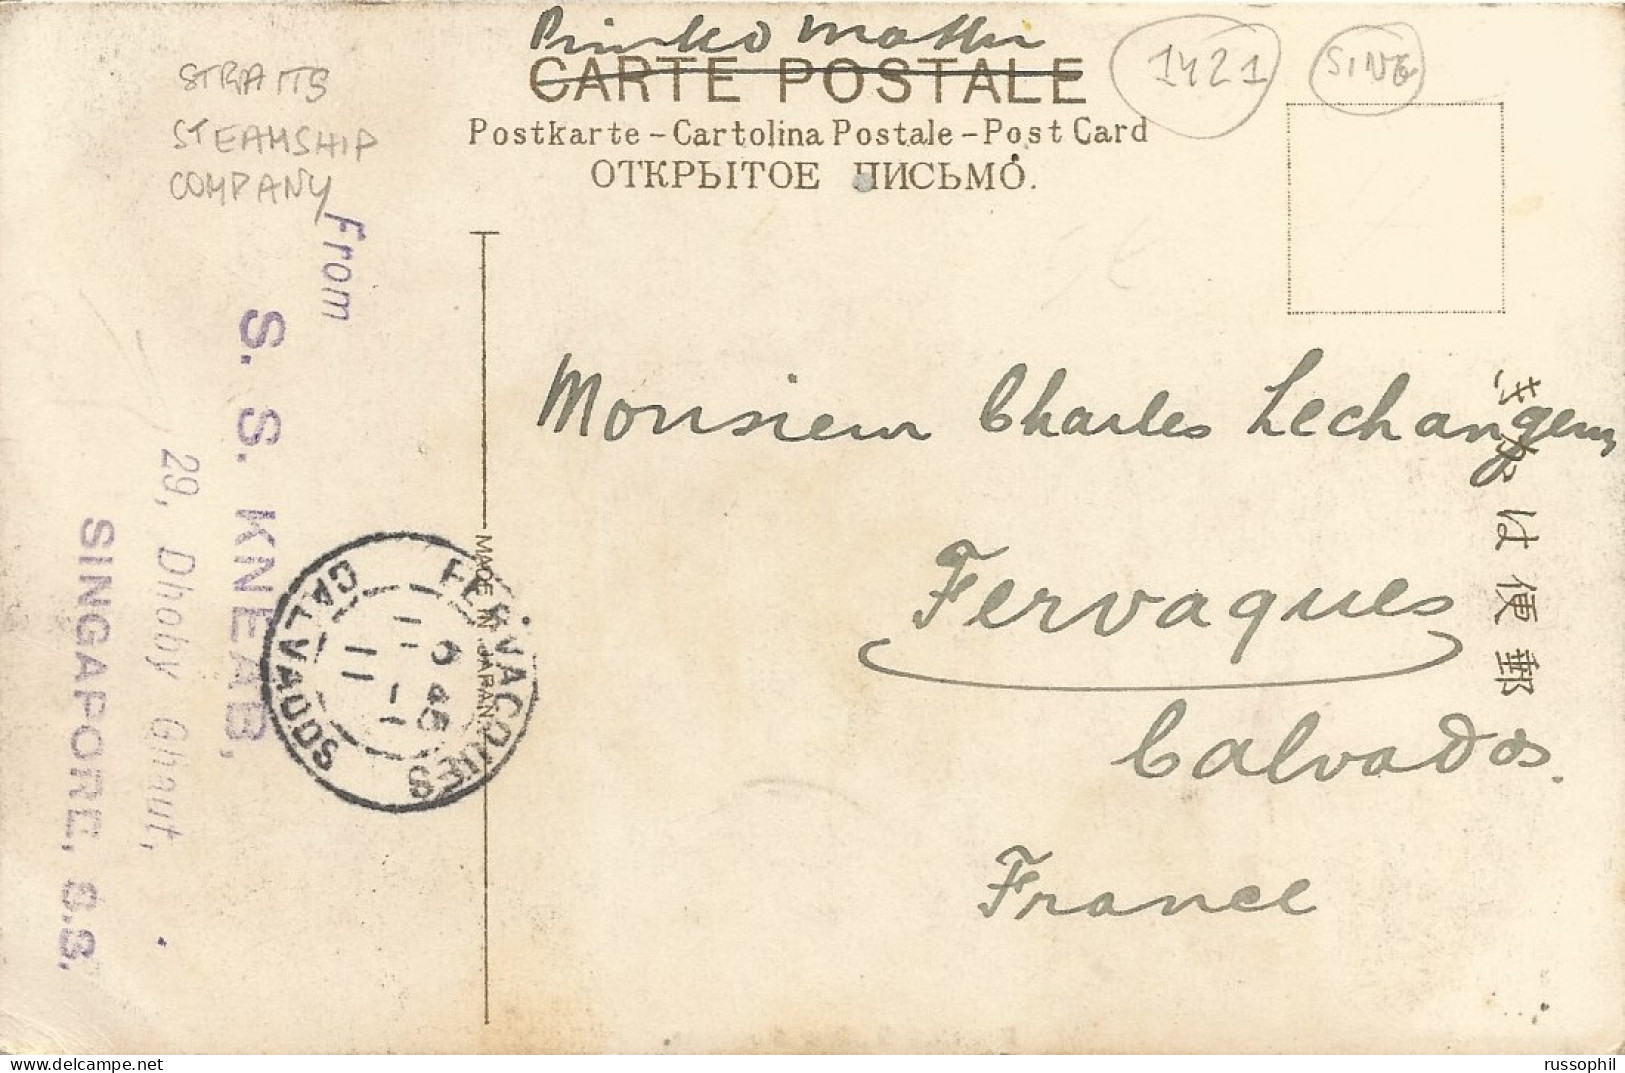 Printed Matter
CARTE POSTALE
Postkarte - Cartolina Postale - Post Card
ОТКРЫТОЕ ПИСЬМО.
1421
SING
STRAITS
STEAMSHIP
COMPANY
From
S. S. KNEAB,
29, Dhoby Ghaut,
SINGAPORE, S.S.
FERVACQUES
CALVADOS
MADE IN JAPAN
Monsieur Charles Lechangeur
Fervaques
Calvados.
France
郵便はがき
russophil
delcampe.net